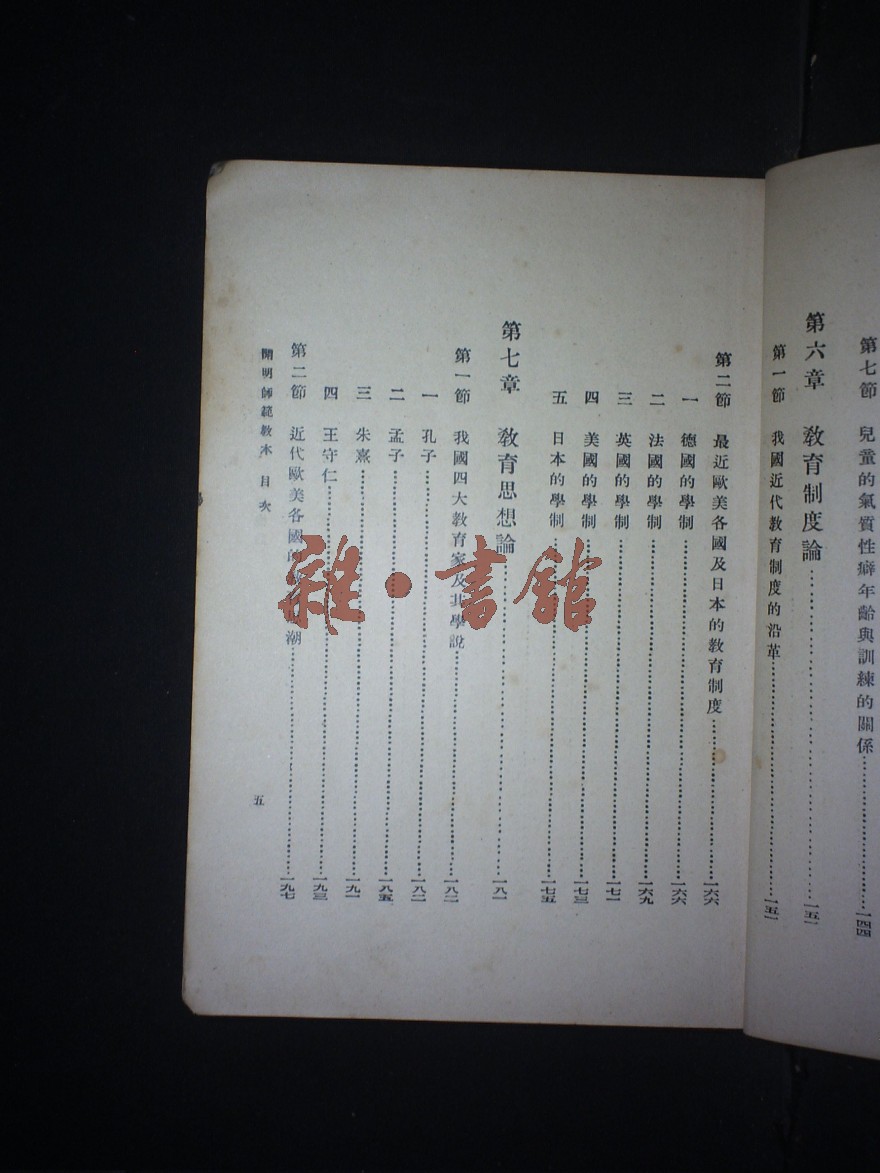 第七節 兒童的氣質性癖年齡與訓練的關係……一四四
第六章 教育制度論……一五一
第一節 我國近代教育制度的沿革……一五一
第二節 最近歐美各國及日本的教育制度……一六六
一 德國的學制……一六六
二 法國的學制……一六九
三 英國的學制……一七一
四 美國的學制……一七三
五 日本的學制……一七五
第七章 教育思想論……一八一
第一節 我國四大教育家及其學說……一八二
一 孔子……一八二
二 孟子……一八五
三 朱熹……一九一
四 王守仁……一九三
第二節 近代歐美各國的潮……一九七
開明師範教本 目次
五
雜·書館